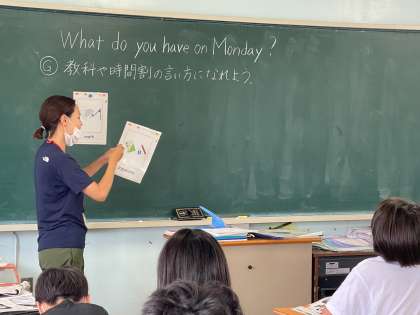 What do you have on Monday?
Ⓖ 教科や時間割の言い方になれよう。